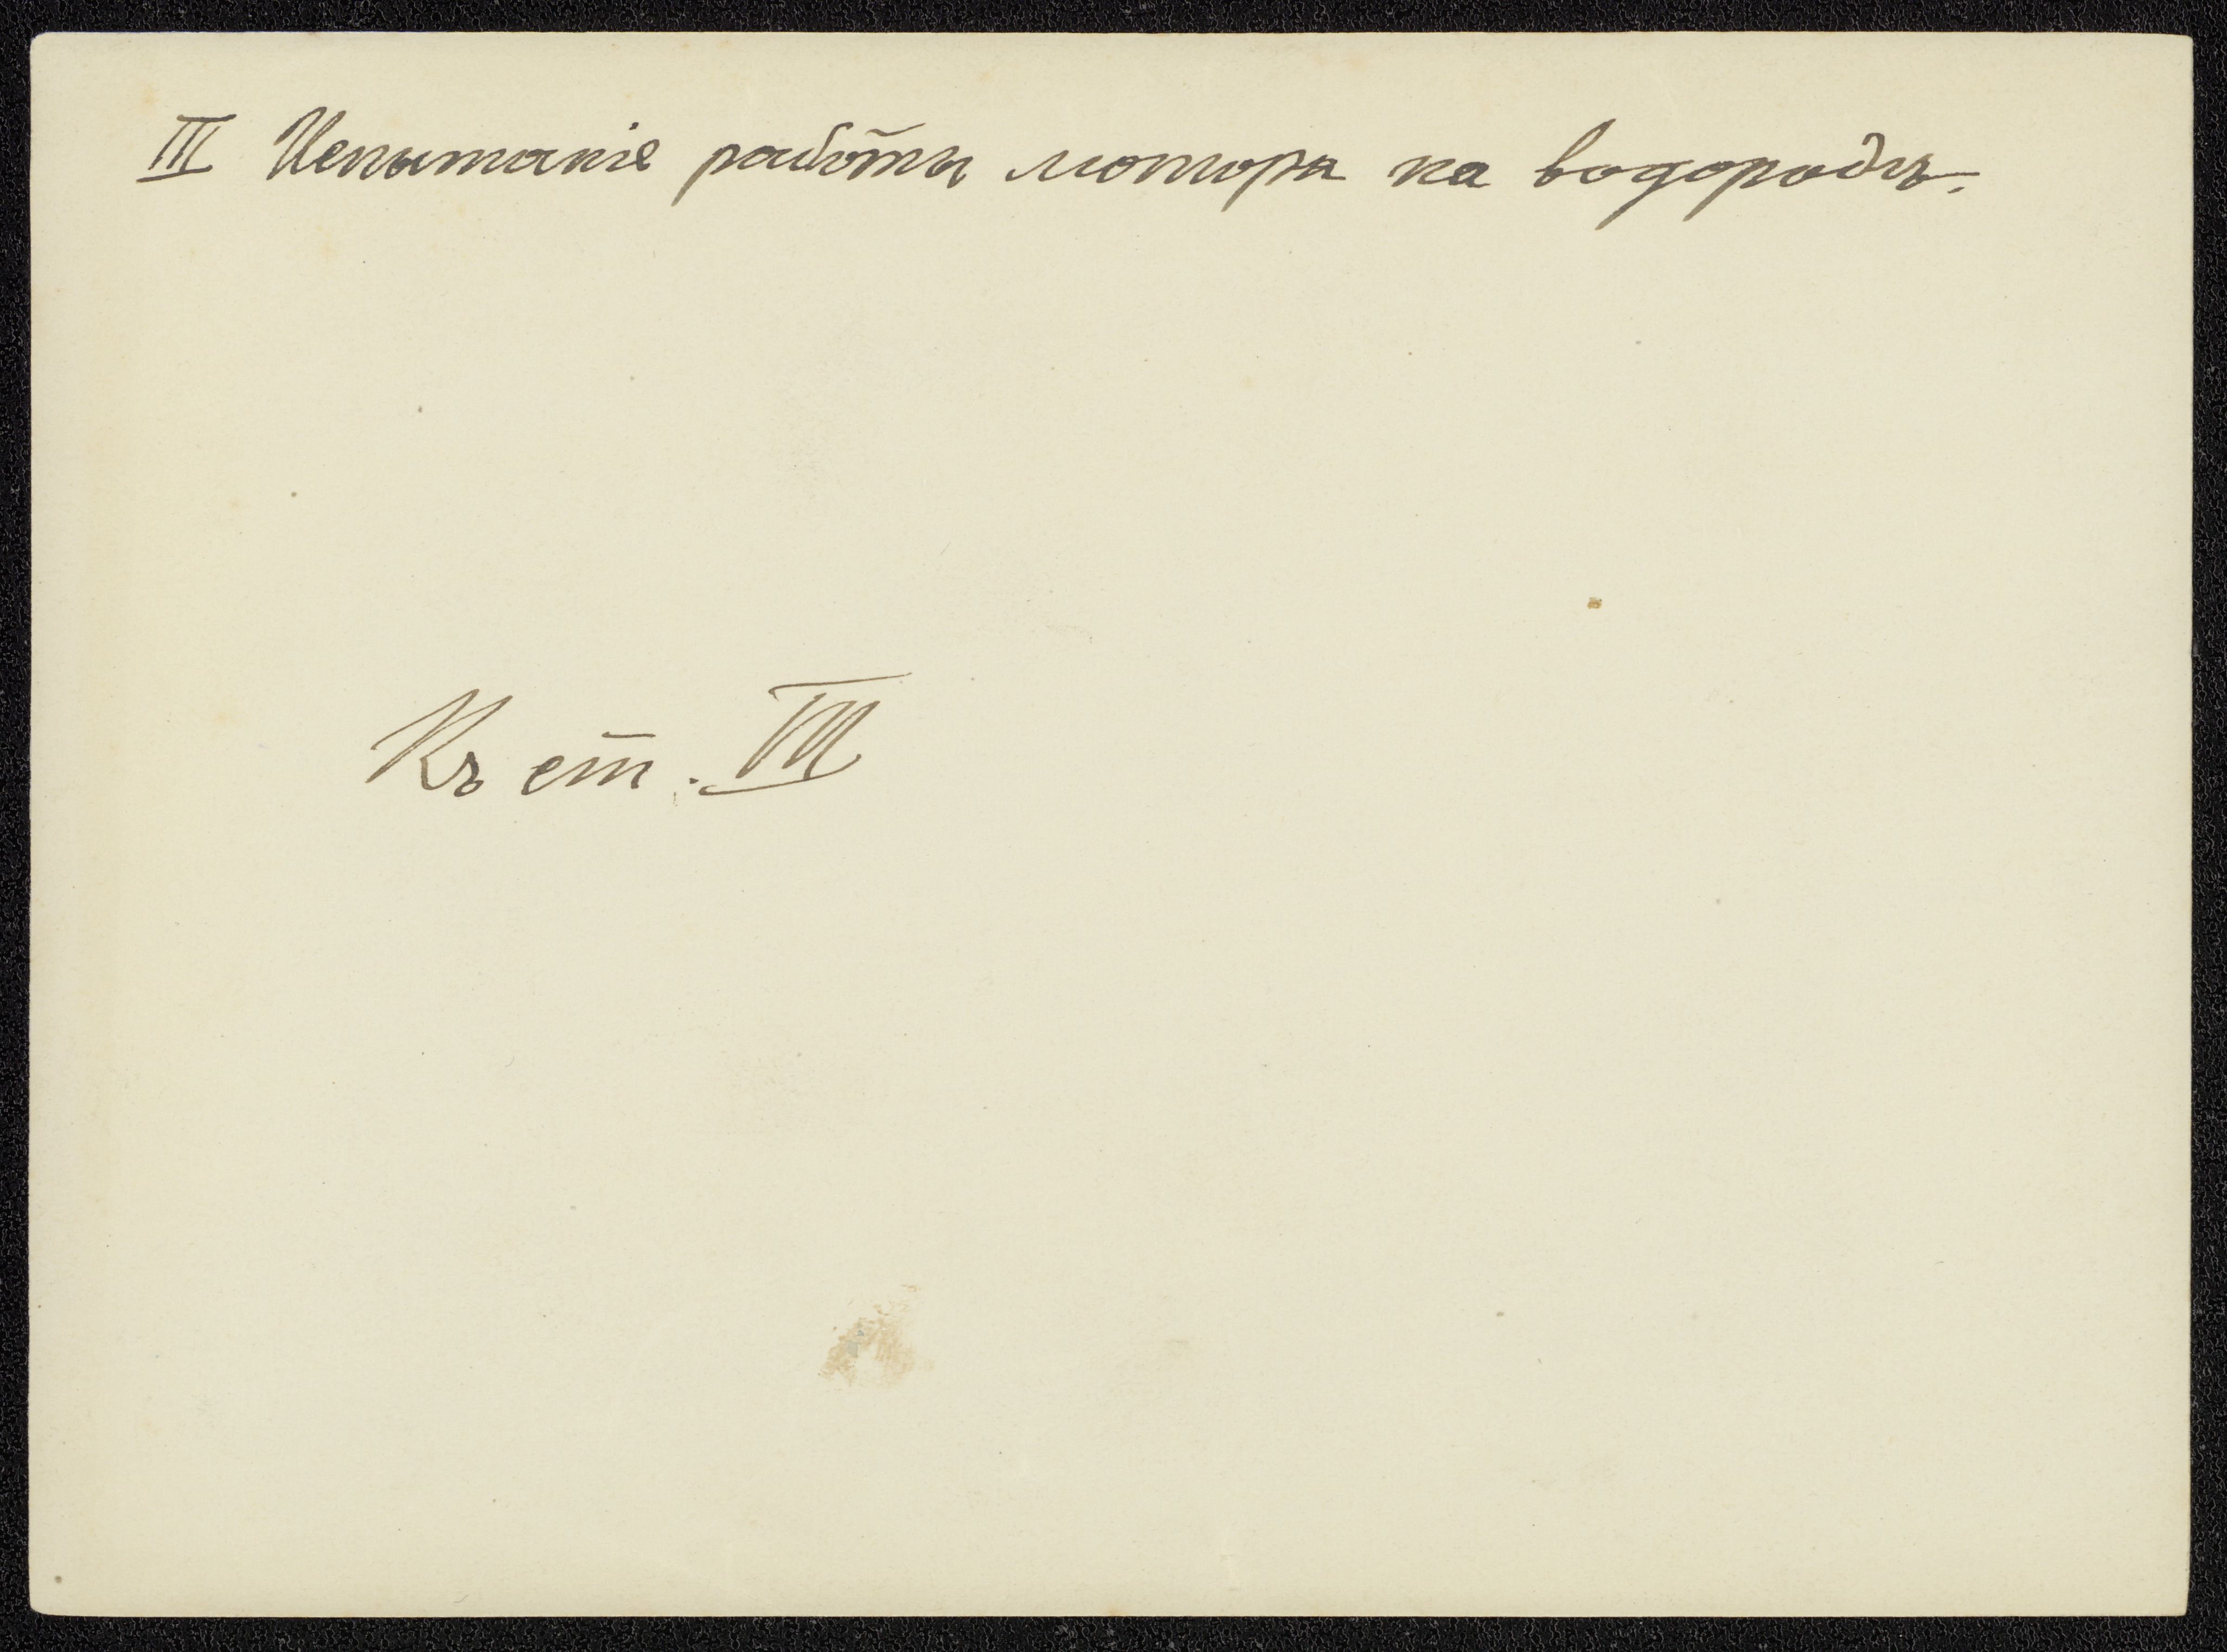 III Испытаніе работы мотора на водородѣ.
Къ ст. III